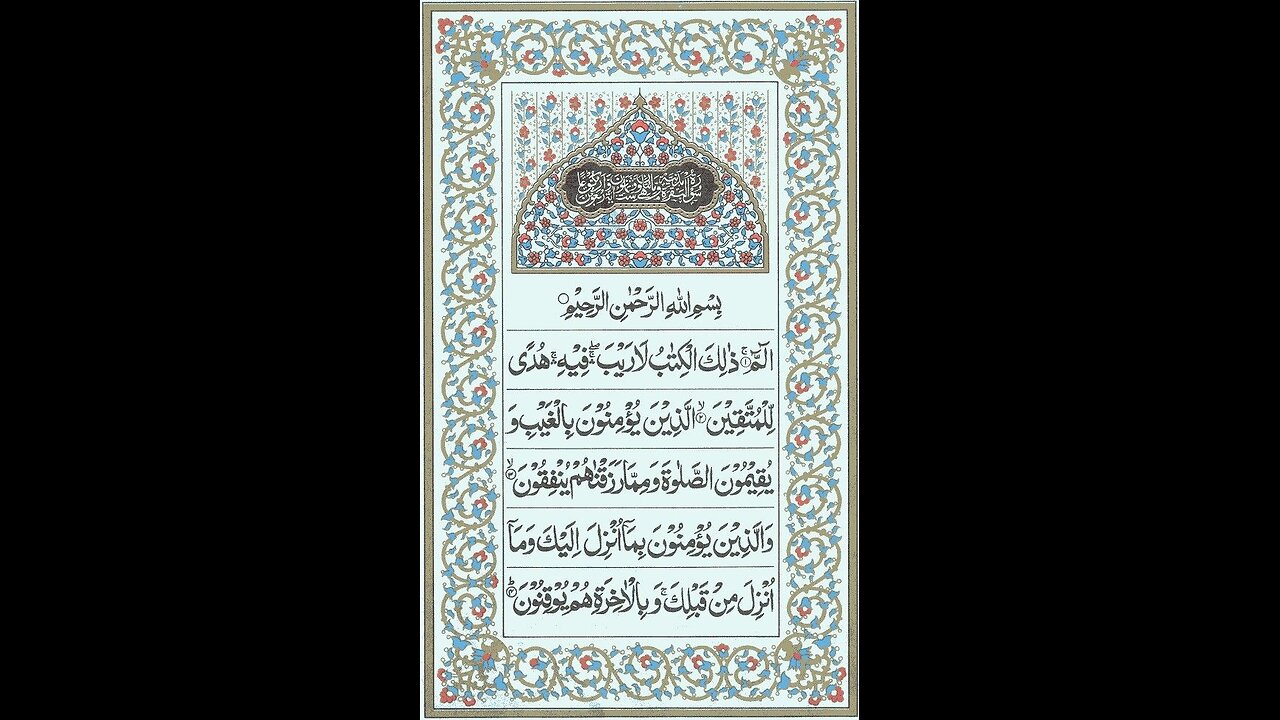 بِسْمِ اللّٰهِ الرَّحْمٰنِ الرَّحِيْمِ ○
الٓمّٓ ۚ﴿۱﴾ ذٰلِكَ الْكِتٰبُ لَا رَيْبَ ۛۖ فِيْهِ ۛۚ هُدًى
لِّلْمُتَّقِيْنَ ۙ﴿۲﴾ الَّذِيْنَ يُؤْمِنُوْنَ بِالْغَيْبِ وَ
يُقِيْمُوْنَ الصَّلٰوةَ وَمِمَّا رَزَقْنٰهُمْ يُنْفِقُوْنَ ۙ﴿۳﴾
وَالَّذِيْنَ يُؤْمِنُوْنَ بِمَاۤ اُنْزِلَ اِلَيْكَ وَمَاۤ
اُنْزِلَ مِنْ قَبْلِكَ ۚ وَبِالْاٰخِرَةِ هُمْ يُوْقِنُوْنَ ؕ﴿۴﴾